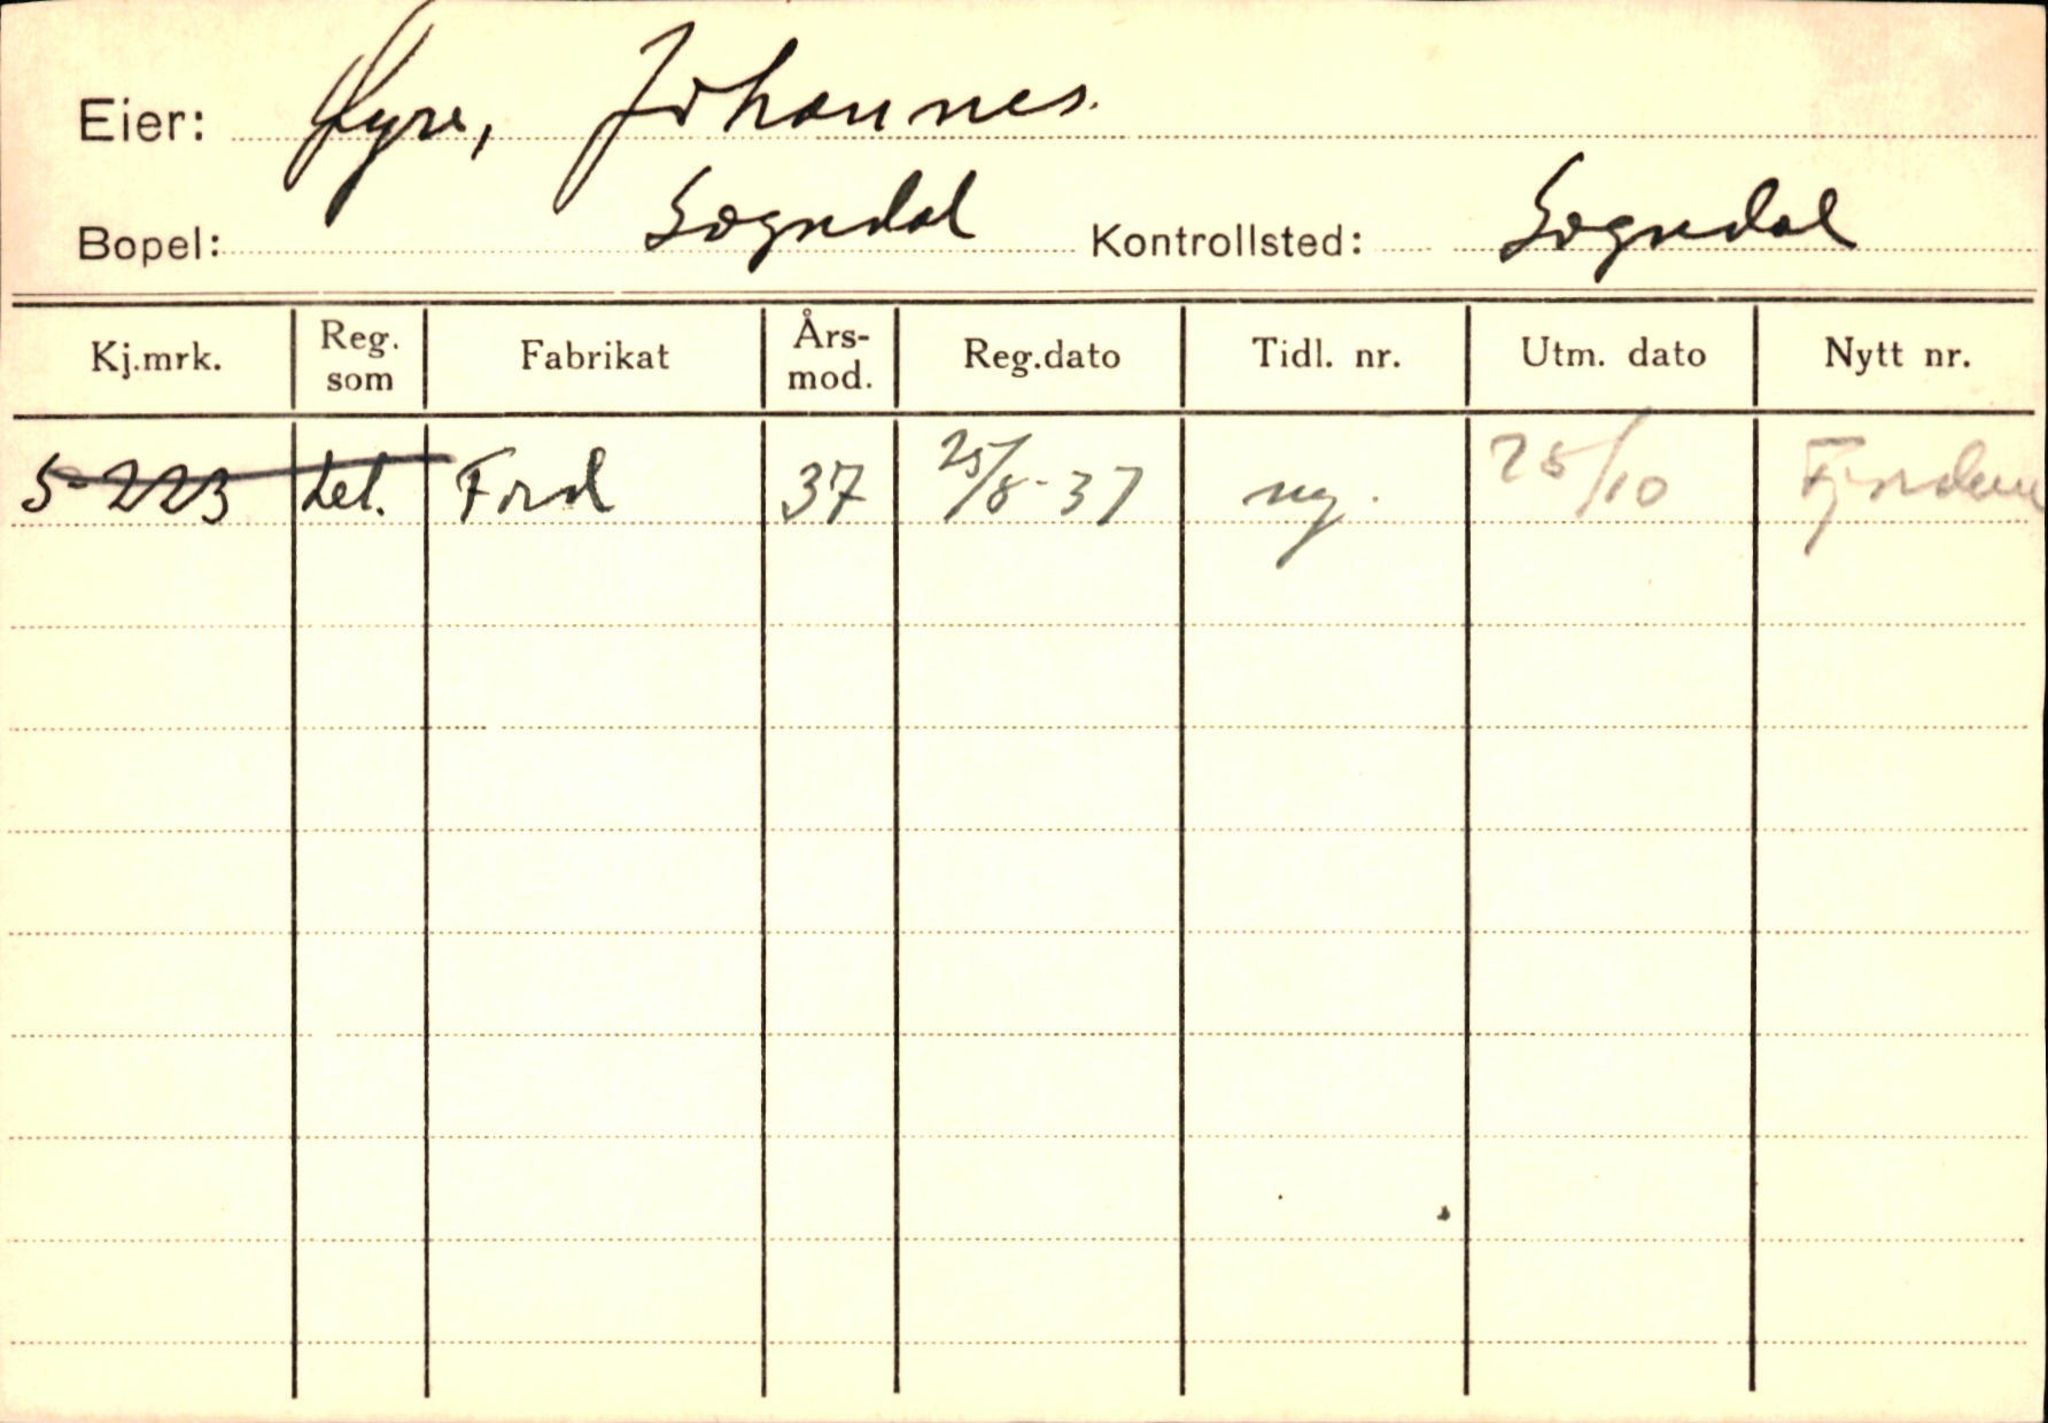 Eier: Øyre, Johannes.
Bopel: Sogndal Kontrollsted: Sogndal
Kj.mrk. Reg. som Fabrikat Års-mod. Reg.dato Tidl. nr. Utm. dato Nytt nr.
S-223 Let. Ford 37 25/8-37 ny. 25/10 Fjordane